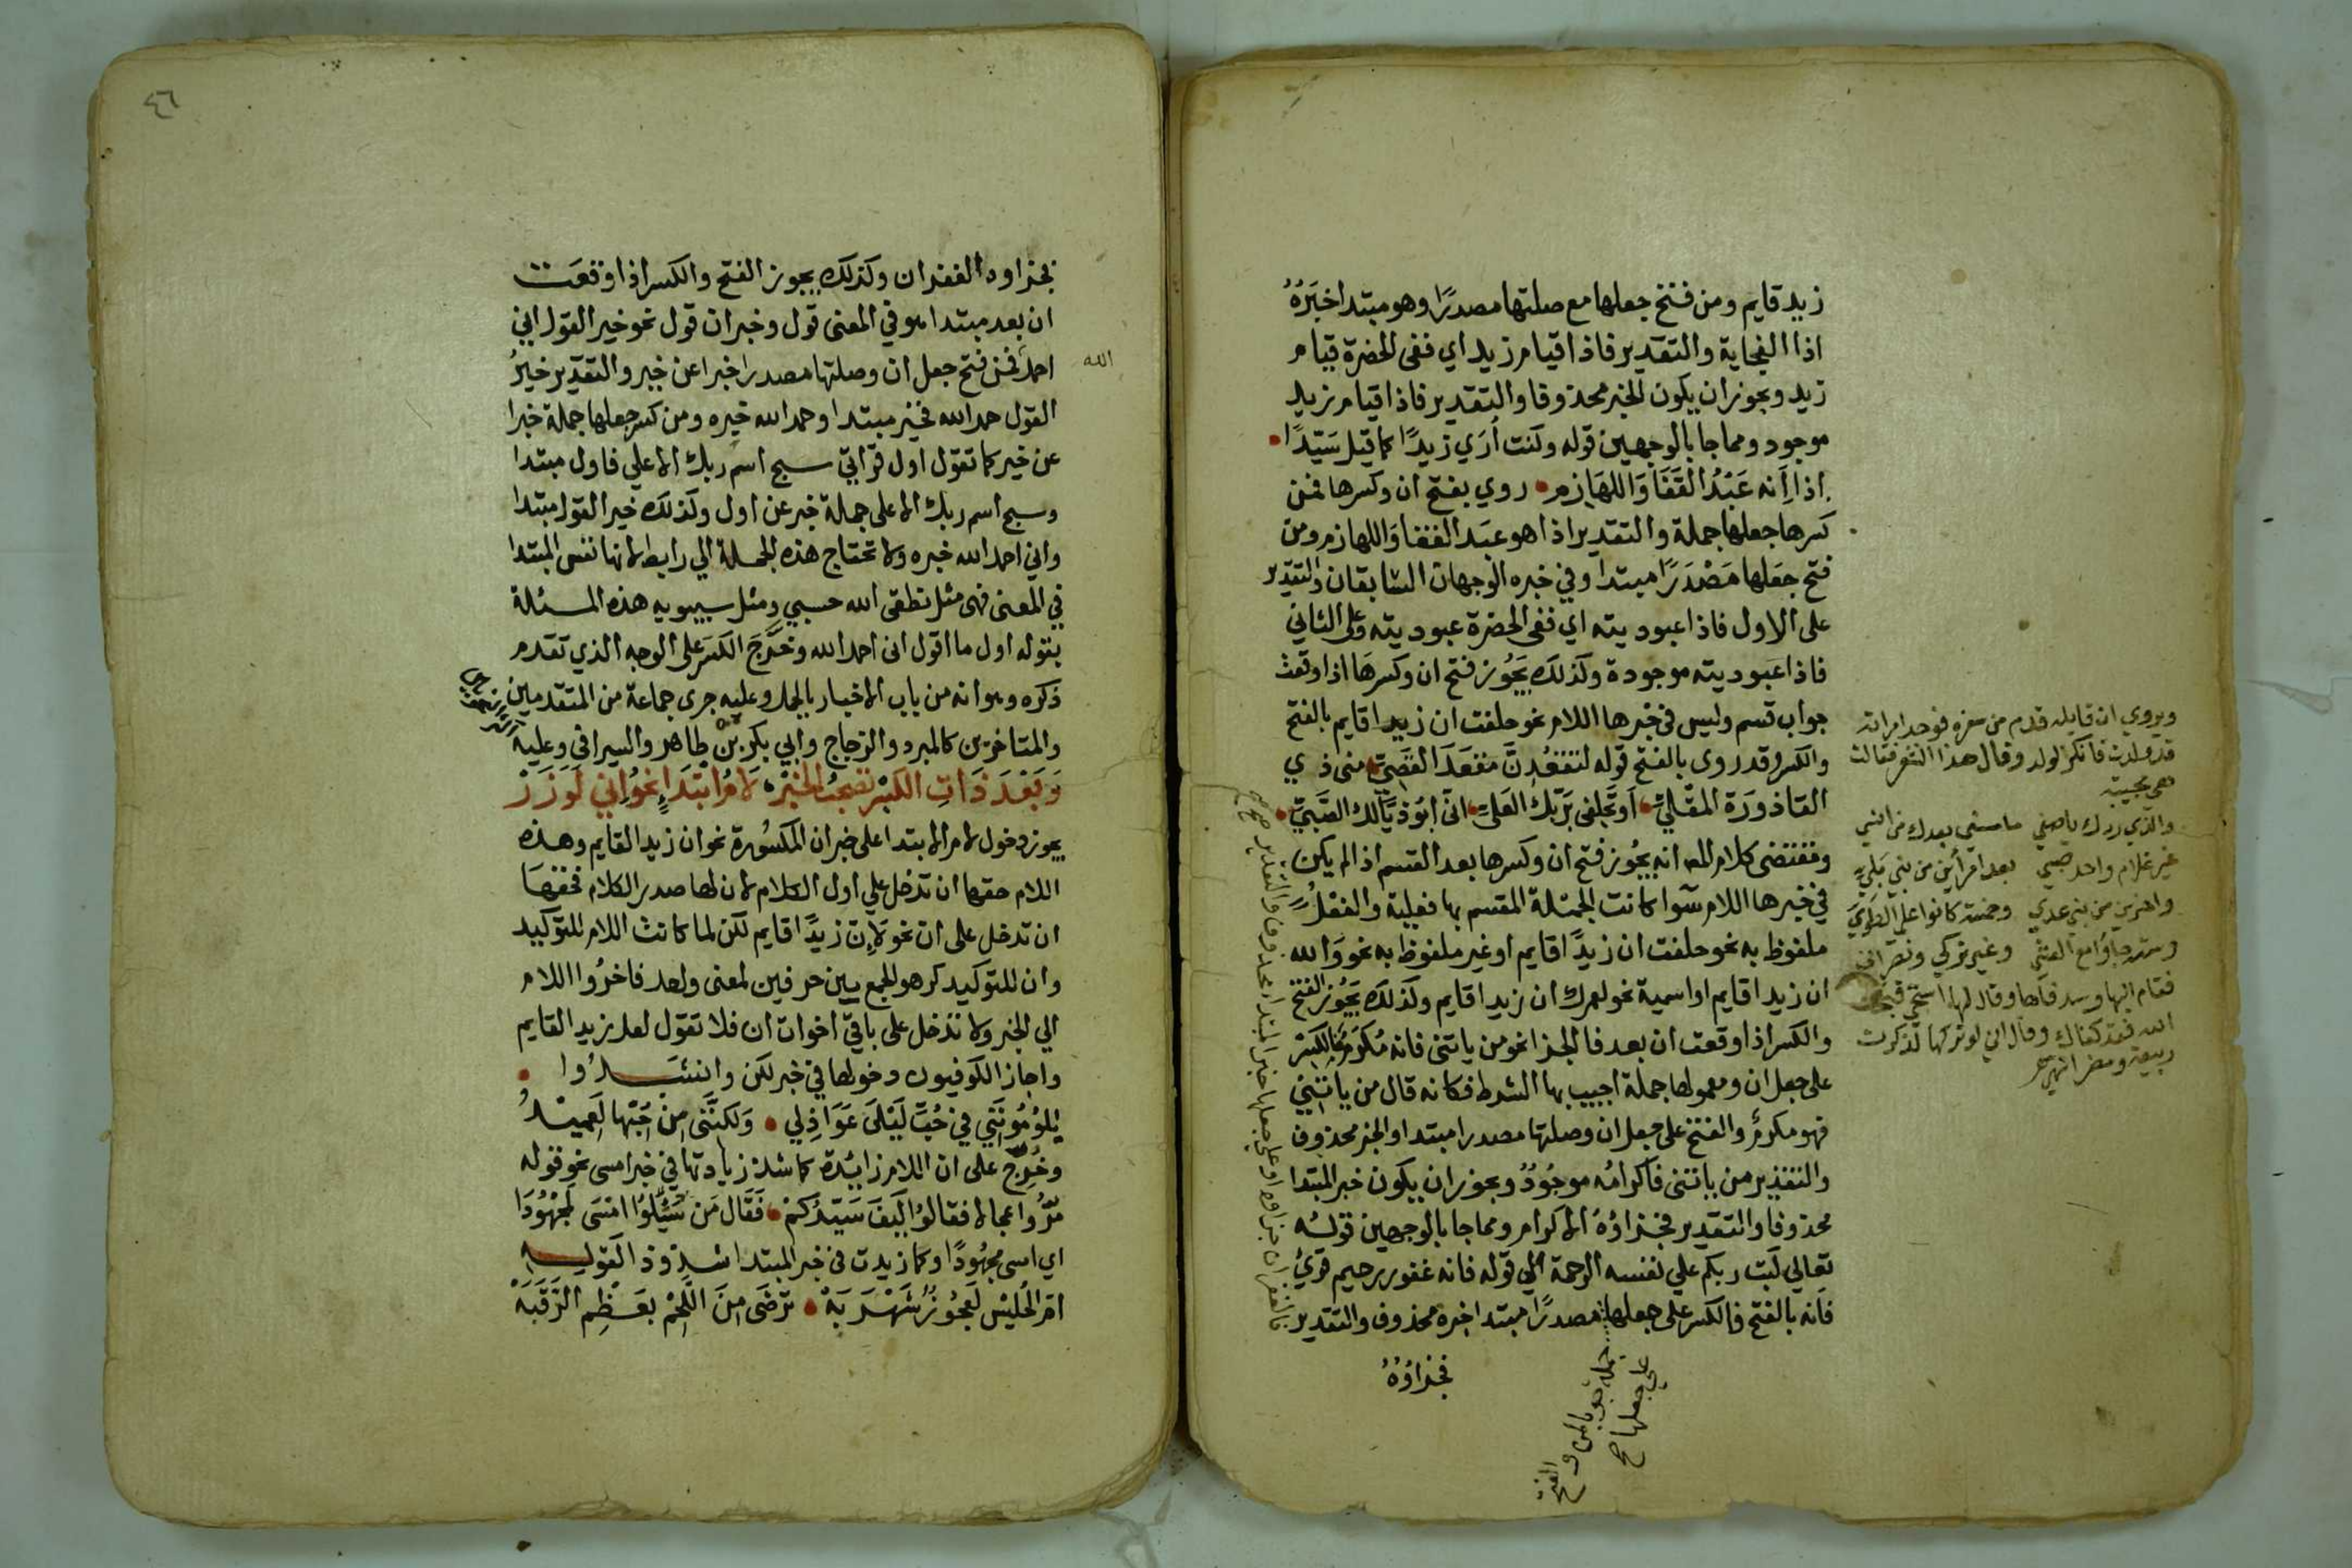 زيد قايم ومن فتح جعلها مع صلتها مصدرًا وهو مبتدا خبَرُهُ
اذا الفجاية والتقدير فاذا قيام زيد اي ففى الحضرة قيام
زيد ويجوز ان يكون الخبر محذوفا والتقدير فاذا قيام زيد
موجود ومما جا بالوجهين قوله وكنت أُرَي زيدًا كما قيل سَيّدًا
اذا انه عَبْدُ القَفَا وَاللهَازِم روي بفتح ان وكسرها فمن
كسرها جعلها جملة والتقدير اذا هو عبَد القفا وَاللهازم ومن
فتح جعَلها مَصْدَرًا مبتدا وفي خبره الوجهان السابقان والتقدير
على الاول فاذا عبوديته اي ففى الحضرة عبوديته وعلى الثاني
فاذا عبوديته موجودة وكذلك يَجُوز فتح ان وكسرهَا اذا وقعت
جواب قسم وليس في خبرها اللام نحو حلفت ان زيدا قايم بالفتح
والكسر وقد روى بالفتح قوله لتقعُدِنَّ مَقعَدَ القَصيّ منى ذي
القاذورَة المقْليّ اَوتَحلفى برَبّك العَليّ انّى ابُوذيّالك الصَّبيّ
ومقتضى كلام المص انه يجُوز فتح ان وكسرها بعد القسم اذا لم يكن
في خبرها اللام سَوا كانت الجملة المقسم بها فعلية والفعْلُ
ملفوظ به نحو حلفت ان زيدًا قايم او غير ملفوظ به نحو وَالله
ان زيدا قايم او اسمية نحو لعمرك ان زيدا قايم وكذلك يَجُوز الفتح
والكسر اذا وقعت ان بعد فا الجزا نحو من ياتنى فانه مُكرَمٌ فالكَسْر
على جعل ان ومعمولها جملة اجيب بها الشرط فكانه قال من ياتنِي
فهو مكرم والفتح على جعل ان وصلتها مصدرا مبتدا والخبر محذوف
والتقدير من ياتنى فاكرامُه موجُودٌ ويجوز ان يكون خبر المبتدا
محذوفا والتقدير فجزاؤهُ الاكرام ومما جا بالوجهين قولُه
تعالي كَتب ربكم علي نفسه الرحمة الي قوله فانه غفور رحيم قريُ
فانه بالفتح فالكسر على جعلها مصدرًا مبتدا خبره محذوف والتقدير
فجزاؤُهُ
على جعلها صح
جملة جوابا لمن والفتح
فالغفران جزاوه او على جعلها خبر المبتداء محذوفا والتقدير صح
ويروي ان قايله قدم من سفره فوجد امراته
قد ولدت فانكر الولد وقال هذا الشعر فقالت
هى مجيبة
والذي ردك ياصفي ما مسني بعدك من انسي
غير غلام واحد صبي بعد امرأين من بني بَلِيّ
واخرين من بني عدي وخمسة كانوا علي الطَوِيّ
وستة جاؤا مع العشي وغير تركي ونصراني
فقام اليها وسد فاها وقال لها اسكتي قبحك
الله فقد كفاك وقال اني لو تركها لذكرت
ربيعة ومضر انتهى
٤٦
فجزاوه الغفران وكذلك يجوز الفتح والكسر اذا وقعَت
ان بعد مبتدا هو في المعنى قول وخبر ان قول نحو خير القول اني
احمد فمن فتح جعل ان وصلتها مصدرا خبرا عن خير والتقدير خيرُ
الله
القول حمد الله فخير مبتدا وحمد الله خبره ومن كسر جعلها جملة خبرا
عن خير كما تقول اول قرآتي سبح اسم ربك الاعلي فاول مبتدا
وسبح اسم ربك الاعلى جملة خبر عن اول وكذلك خير القول مبتدا
واني احمد الله خبره ولا تحتاج هذه الجملة الي رابط لانها نفس المبتدا
في المعنى فهى مثل نطقى الله حسبي ومثل سيبويه هذه المسئلة
بقوله اول ما اقول انى احمد الله وخَرَّجَ الكسَر على الوجه الذي تقدم
ذكره وهو انه من باب الاخبار بالجمل وعليه جرى جماعة من المتقدمين
والمتاخرين كالمبرد والزجاج وابي بكر بن طاهر والسيرافى وعليه
وَبَعْدَ ذَاتِ الكَسْرِ تصْحَبُ الخَبَرْ لَامُ ابْتِدَاءٍ نحوُ اِنّي لَوَزَرْ
يجوز دخول لام الابتدا على خبر ان المكسُورة نحو ان زيدا لقايم وهذه
اللام حقها ان تدخل علي اول الكلام لان لها صدر الكلام فحقهَا
ان تدخل على ان نحو لَإِن زيدًا قايم لكن لما كانت اللام للتوكيد
وان للتوكيد كرهو الجمع بين حرفين لمعنى واحد فاخرُوا اللام
الي الخبر ولا تدخل على باقي اخوات ان فلا تقول لعل زيدا لقايم
واجاز الكوفيون دخولها في خبر لكن وانشَدُوا
يَلُومُونَنِي في حُبّ لَيْلَى عَوَاذِلي وَلكِنَّنِى مِنْ حُبّها لَعَمِيْدُ
وخُرّجَ على ان اللام زايدة كما شذ زيادتها في خبر امسى نحو قوله
مَرُّوا عجالا فقالُوا كَيفَ سَيّدُكمْ فَقَال مَن سُئِلُوا امْسَى لمَجْهُودَا
اي امسى مجهُودًا وكما زيدت في خبر المبتدا شذوذا كقوليه
امّ الحُلَيْس لَعَجُوزٌ شَهْرَبَهْ تَرْضَى مِنَ اللَّحْم بعَظْمِ الرَّقَبَهْ